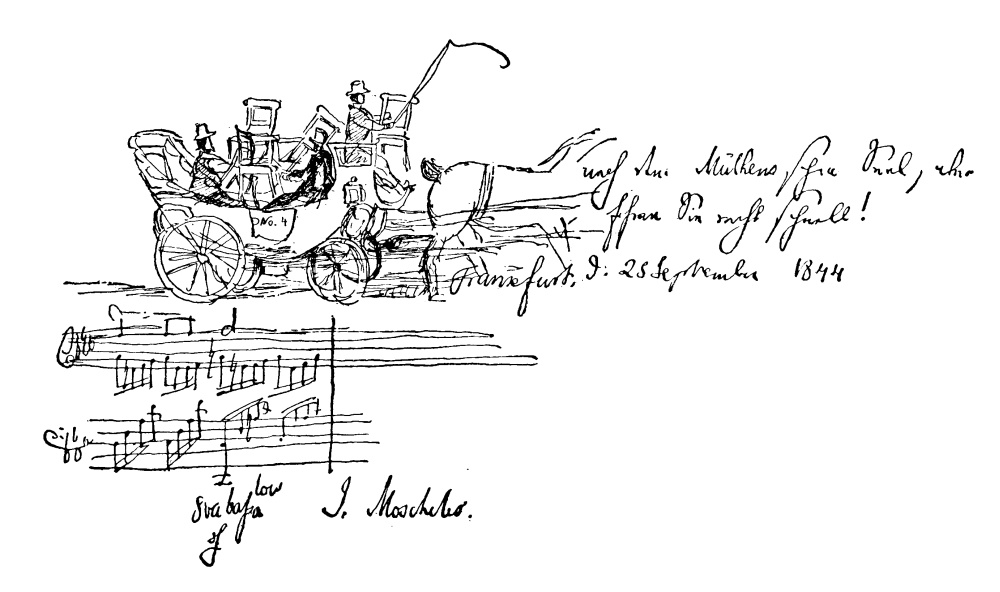 No. 4
nach dem Mühlens'schen Saal, aber
fahren Sie recht schnell!
Frankfurt, d: 25 September 1844
8va bassa
sf
I. Moscheles.